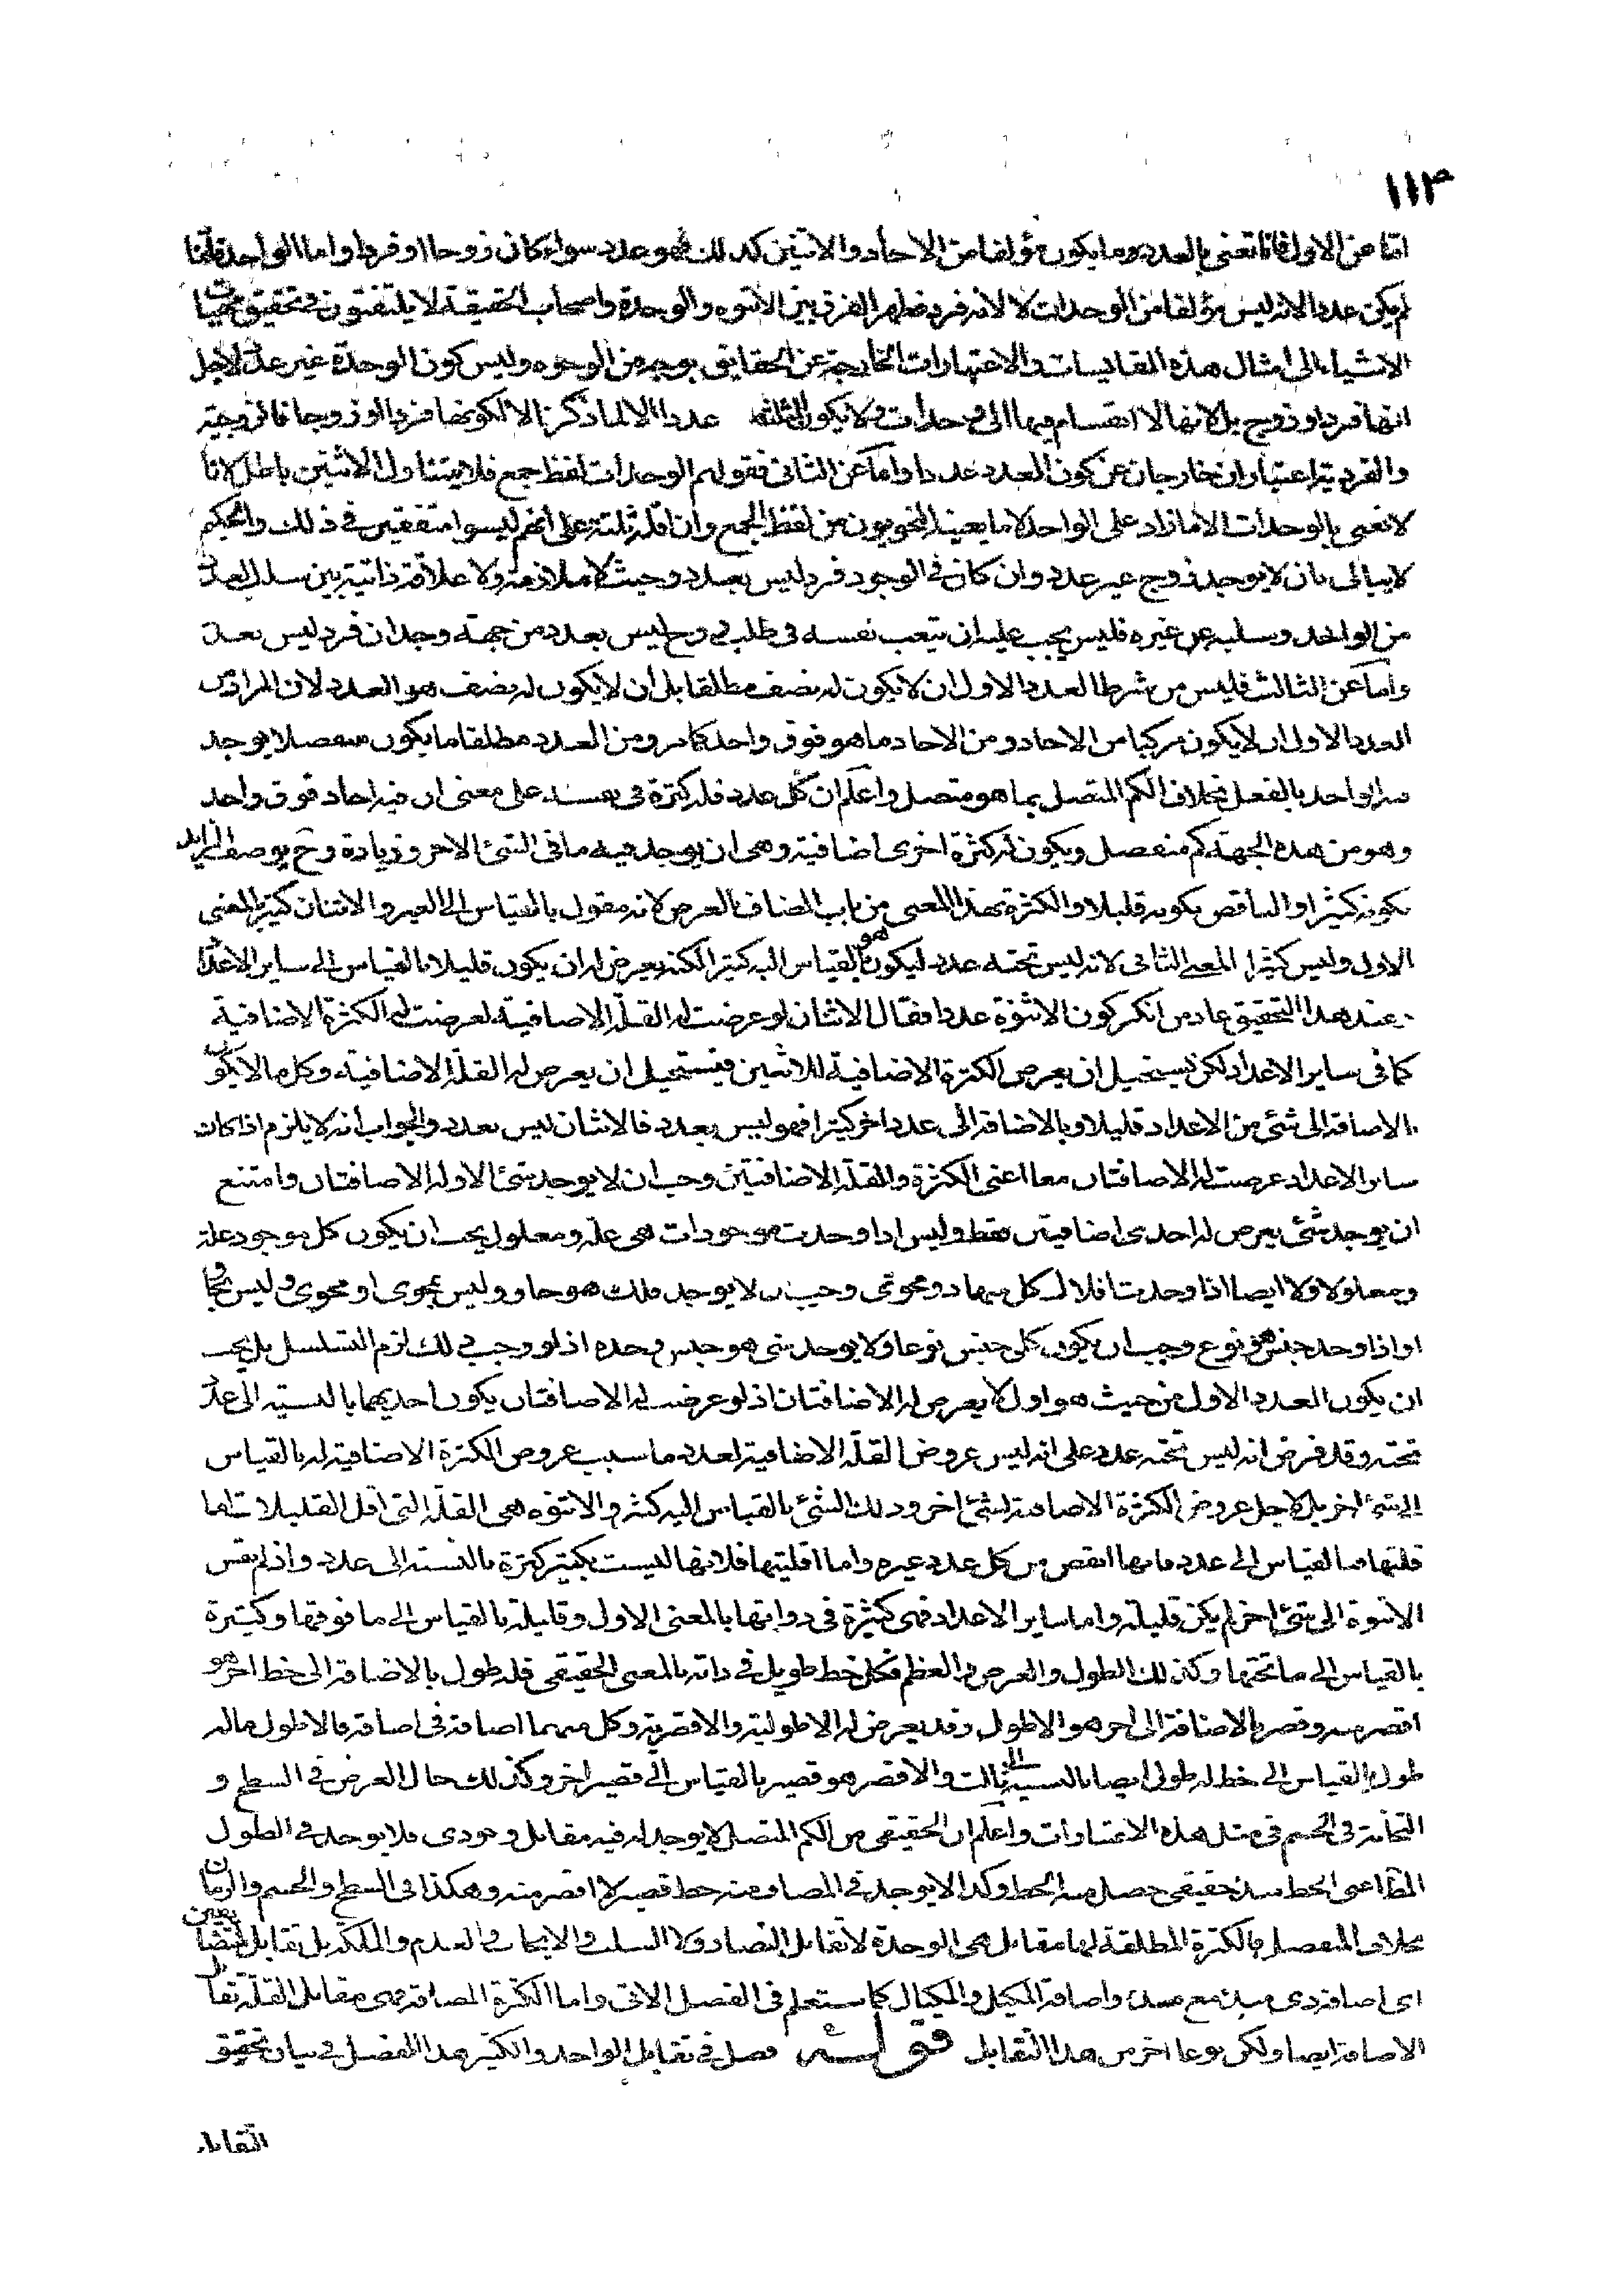 ١١٣
اما عن الاول فانا نعنى بالعدد وما يكون مؤلفا من الاحاد والاثنين كذلك فهو عدد سواء كان زوجا او فردا واما الواحد فلما
لم يكن عددا لانه ليس مؤلفا من الوحدات لا لانه فرد فظهر الفرق بين الاثنوه والوحدة واصحاب الحقيقة لا يلتفتون فى تحقيق مهيات
الاشياء الى امثال هذه المقايسات والاعتبارات الخارجة عن الحقايق بوجه من الوجوه وليس كون الوحدة غير عدد لاجل
انها فرد او زوج بل لانها لا انقسام فيها الى وحدات ولا يكون الثلثه عددا الا لما ذكرنا لا لكونها فردا او زوجا فالزوجية
والفردية اعتباران خارجان عن كون العدد عددا واما عن الثانى فقولهم الوحدات لفظ جمع فلا يتناول الاثنين باطل لانا
لا نعنى بالوحدات الا ما زاد على الواحد لا ما يعينه النحويون من لفظ الجمع وان اقله ثلثة على انهم ليسوا متفقين فى ذلك والحكيم
لا يبالى بان لا يوجد زوج غير عدد وان كان فى الوجود فرد ليس بعدد وحيث لا ملازمة ولا علاقة ذاتية بين سلب العدد
من الواحد وسلبه عن غيره فليس يجب عليه ان يتعب نفسه فى طلب زوج ليس بعدد من جهة وجدان فرد ليس بعدد
واما عن الثالث فليس من شرط العدد الاول ان لا يكون له نصف مطلقا بل ان لا يكون له نصف هو العدد لان المراد من
العدد الاول ان لا يكون مركبا من الاحاد ومن الاحاد ما هو فوق واحد كامر ومن العدد مطلقا ما يكون منفصلا يوجد
منه الواحد بالفعل بخلاف الكم المتصل بما هو متصل واعلم ان كل عدد فله كثرة فى نفسه على معنى ان فيه احاد فوق واحد
وهو من هذه الجهة كم منفصل ويكون له كثرة اخرى اضافية وهى ان يوجد فيه ما فى الشئ الاخر وزيادة وح يوصف الزايد
بكونه كثيرا والناقص بكونه قليلا والكثرة بهذا المعنى من باب المضاف بالعرض لانه مقول بالقياس الى الغير والاثنان كثير بالمعنى
الاول وليس كثيرا بالمعنى الثانى لانه ليس تحته عدد ليكون هو بالقياس اليه كثيرا لكنه يعرض له ان يكون قليلا بالقياس الى ساير الاعداد
وعند هذا التحقيق عاد من انكر كون الاثنوة عددا فقال الاثنان لو عرضت له القلة الاضافية لعرضت له الكثرة الاضافية
كما فى ساير الاعداد لكن يستحيل ان يعرض الكثرة الاضافية للاثنين فيستحيل ان يعرض له القلة الاضافية وكل ما لا يكون
بالاضافة الى شئ من الاعداد قليلا وبالاضافة الى عدد اخر كثيرا فهو ليس بعدد فالاثنان ليس بعدد والجواب انه لا يلزم اذا كانت
ساير الاعداد عرضت له الاضافتان معا اعنى الكثرة والقلة الاضافيتين وجب ان لا يوجد شئ الا وله الاضافتان وامتنع
ان يوجد شئ يعرض له احدى اضافيتين فقط وليس اذا وجدت موجودات هى علة ومعلول يجب ان يكون كل موجود علة
ومعلولا ولا ايضا اذا وجدت افلاك كل منها حاو ومحوى وجب ان لا يوجد فلك هو حاو وليس بمحوى او محوى وليس بحاو
او اذا وجد جنس هو نوع وجب ان يكون كل جنس نوعا ولا يوجد شئ هو جنس وحده اذ لو وجب ذلك لزم التسلسل بل يجب
ان يكون العدد الاول من حيث هو اول لا يعرض له الاضافتان اذ لو عرضت له الاضافتان يكون احديهما بالنسبة الى عدد
تحته وقد فرض انه ليس تحته عدد على انه ليس عروض القلة الاضافية لعدد ما بسبب عروض الكثرة الاضافية له بالقياس
الى شئ اخر بل لاجل عروض الكثرة الاضافية لشئ اخر وذلك الشئ بالقياس اليه كثير والاثنوه هى القلة التى اقل القليلات اما
قلتها فبالقياس الى عدد ما لانها انقص من كل عدد غيره واما اقليتها فلانها ليست بكثير كثرة بالنسبة الى عدد واذ لم يقس
الاثنوة الى شئ اخر لم يكن قليلة واما ساير الاعداد فهى كثيرة فى ذواتها بالمعنى الاول وقليلة بالقياس الى ما فوقها وكثيرة
بالقياس الى ما تحتها وكذلك الطول والعرض والعظم فكل خط طويل فى ذاته بالمعنى الحقيقى فله طول بالاضافة الى خط اخر هو
اقصر منه وقصر بالاضافة الى اخر هو الاطول وقد يعرض له الاطولية والاقصرية وكل منهما اضافة فى اضافة فالاطول ما له
طول بالقياس الى خط له طول ايضا بالنسبة الى ثالث والاقصر هو قصير بالقياس الى قصير اخر وكذلك حال العرض فى السطح و
الثخانة فى الجسم فى مثل هذه الاعتبارات واعلم ان الحقيقى من الكم المتصل لا يوجد له فيه مقابل وجودى فلا يوجد فى الطول
الخطا اعنى الخط سند حقيقى حصل منه الخط وكذا لا يوجد فى المضاف عنه خط قصير لا اقصر منه وهكذا فى السطح والجسم والزمان
بخلاف المنفصل فالكثرة المطلقة لها مقابل هى الوحدة لا تقابل التضاد ولا السلب والايجاب ولا العدم والملكة بل تقابل المتضايفين
اى اضافة ذى مبدء مع مبدء واضافة المكيل والمكيال كما ستعلم فى الفصل الاتى واما الكثرة المضافة فهى مقابل القلة تقابل
الاضافة ايضا ولكن نوعا اخر من هذا التقابل قوله فصل فى تقابل الواحد والكثير هذا الفصل فى بيان تحقيق
التقابل